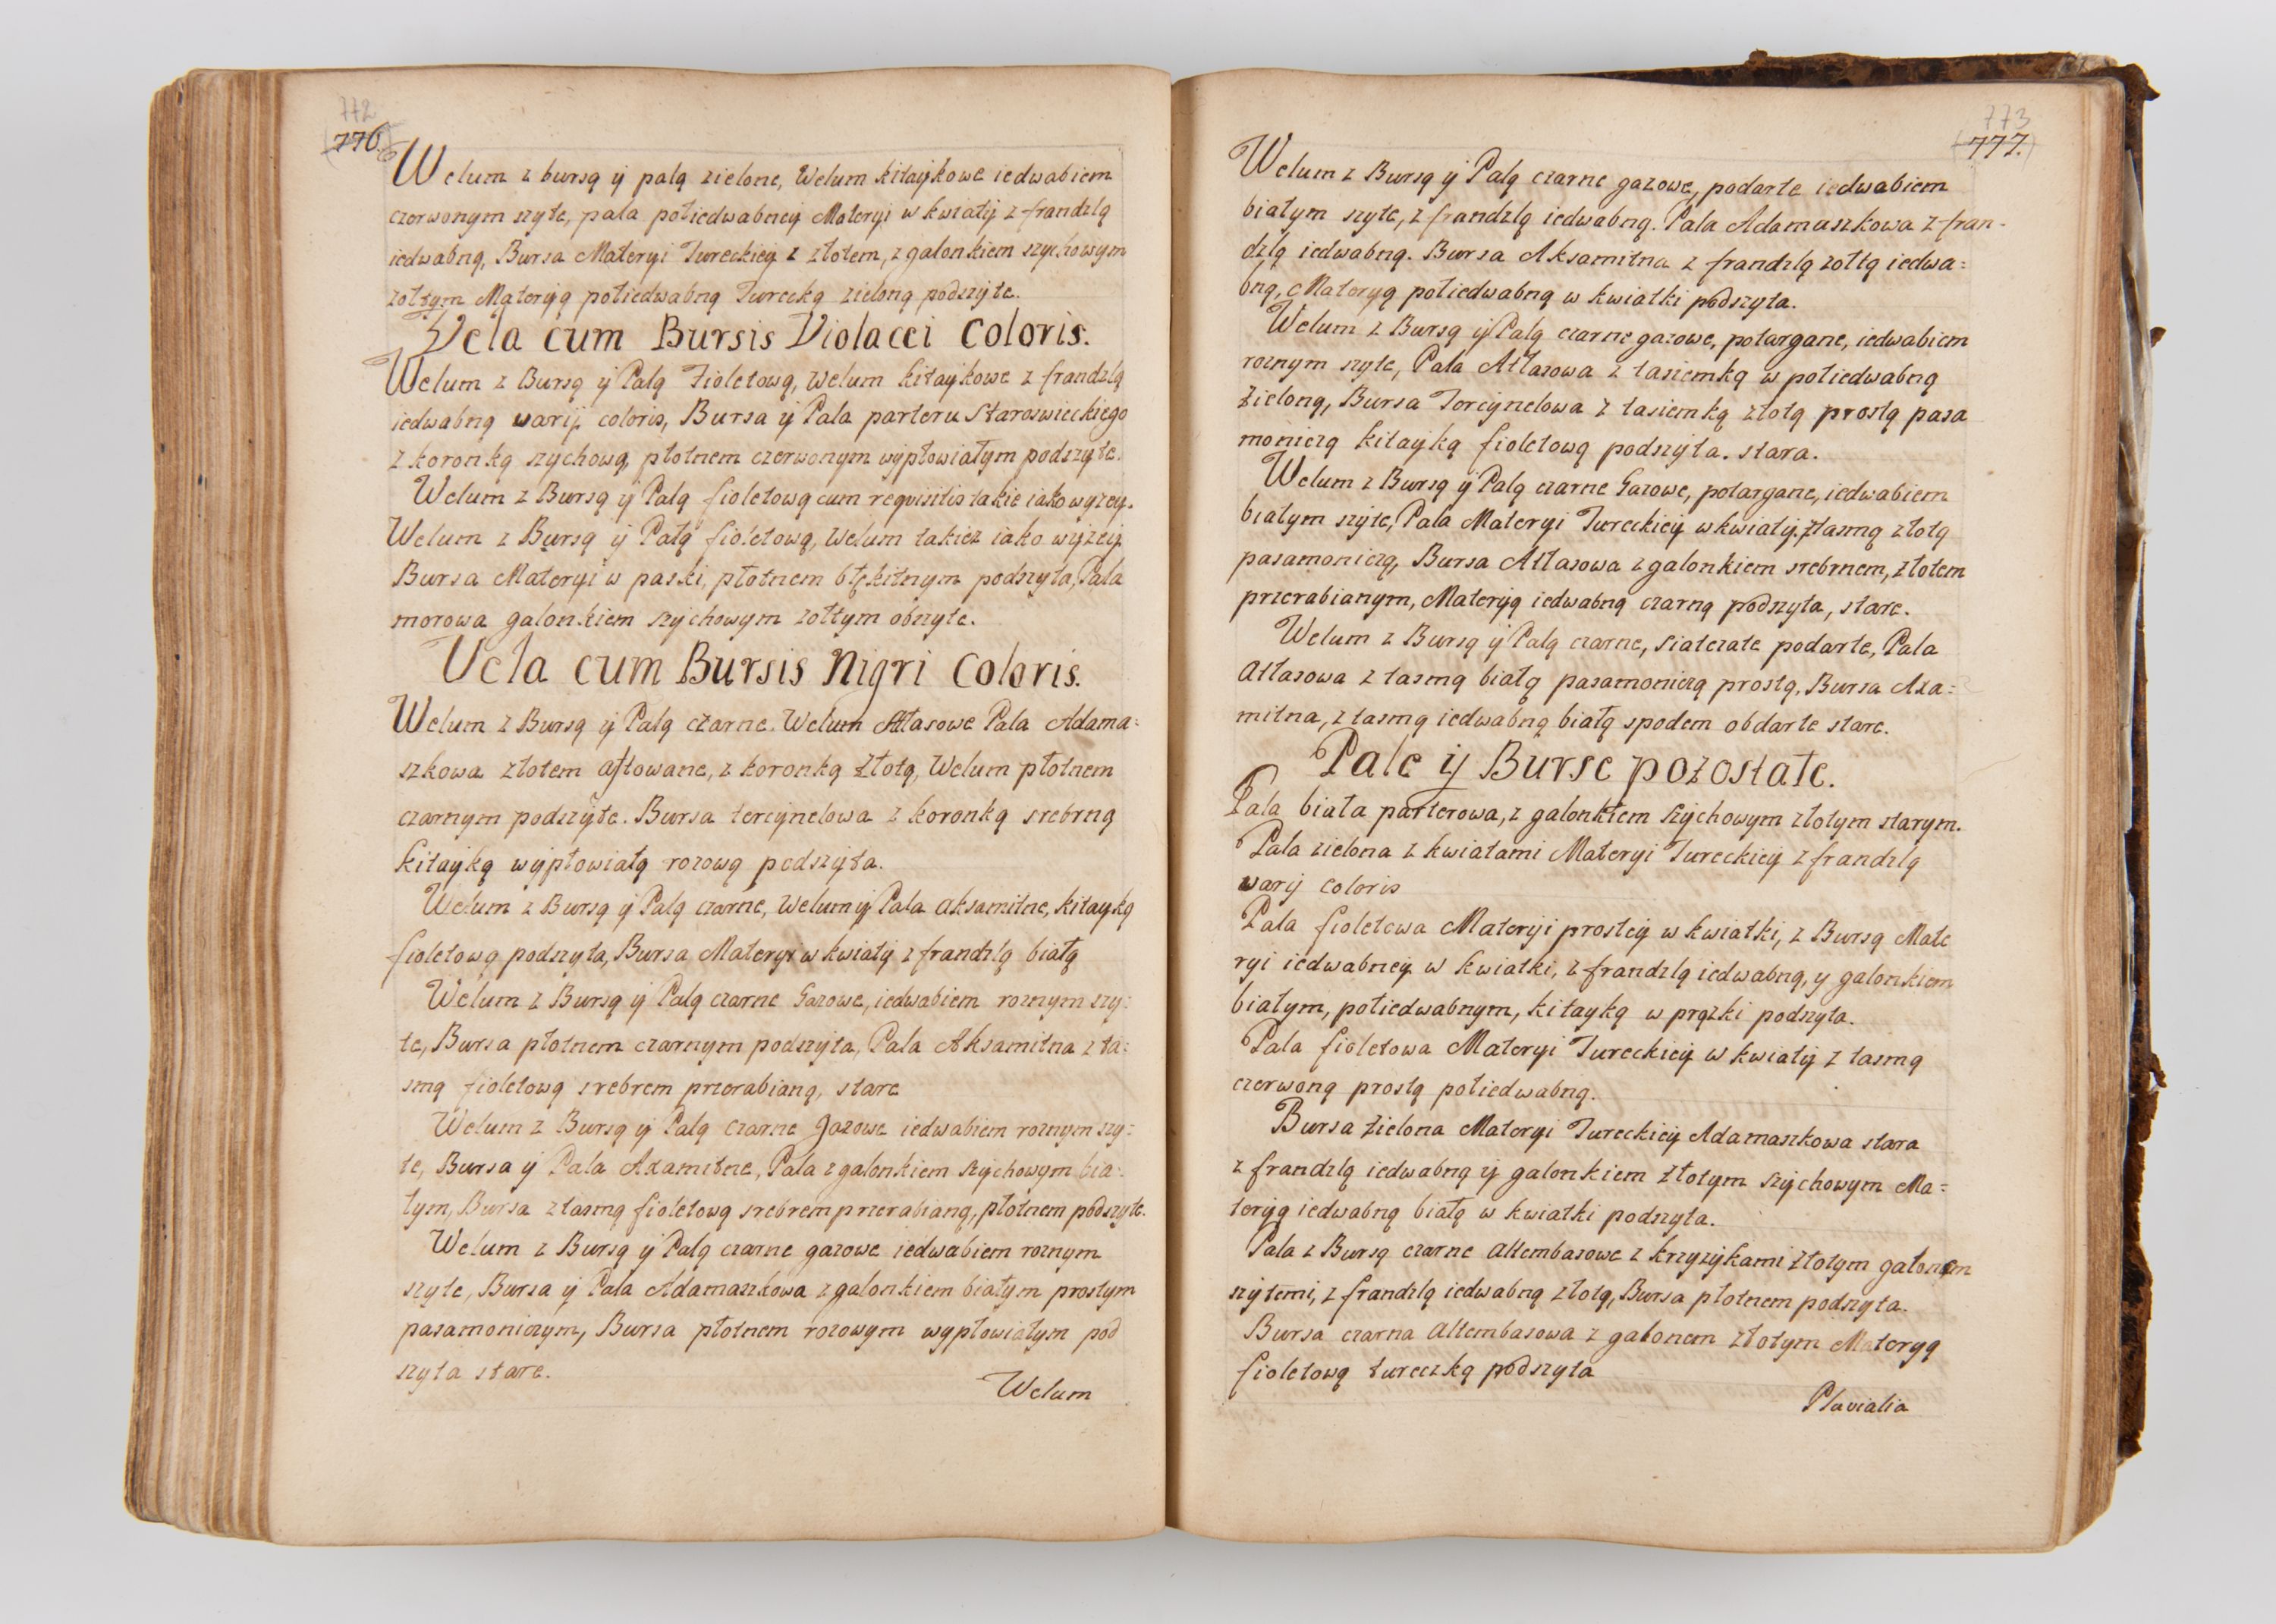 772
776.
Welum z bursą ÿ palą zielone, Welum kitaÿkowe iedwabiem
czerwonym szyte, pala połiedwabneÿ Materyi w kwiatÿ z frandzlą
iedwabną, Bursa Materyi Tureckieÿ z złotem, z galonkiem szychowym
zołtym Materÿą połiedwabną Turecką zieloną podszÿte.
Vela cum Bursis Violacei Coloris.
Welum z Bursą ÿ Palą Fioletową, Welum kitaÿkowe z frandzlą
iedwabną warij coloris, Bursa ÿ Pala parteru Staroswieckiego
z koronką szychową, płotnem czerwonym wÿpłowiałym podszÿte.
Welum z Bursą ÿ Palą fioletową cum requisitis takie iako wyzey.
Welum z Bursą ÿ Palą fioletową, Welum takiez iako wÿzeÿ
Bursa Materyi w paski, płotnem błękitnym podszyta, Pala
morowa galonkiem szÿchowym zołtym obszyte.
Vela cum Bursis Nigri Coloris.
Welum z Bursą ÿ Palą czarne. Welum Atłasowe Pala Adama=
szkowa złotem aftowane, z koronką złotą, Welum płotnem
czarnym podszÿte. Bursa tercÿnelowa z koronką srebrną
kitaÿką wÿpłowiałą rozową podszÿta.
Welum z Bursą ÿ Palą czarne, Welum ÿ Pala aksamitne, kitayką
fioletową podszyta, Bursa Materyi w kwiatÿ z frandzlą białą
Welum z Bursą ÿ Palą czarne Gazowe, iedwabiem roznym szy=
te, Bursa płotnem czarnym podszÿta, Pala Aksamitna z ta=
smą fioletową srebrem przerabianą, stare
Welum z Bursą ÿ Palą czarne Gazowe iedwabiem roznym szy=
te, Bursa ÿ Pala Axamitne, Pala z galonkiem szÿchowym bia=
łym, Bursa z tasmą fioletową srebrem przerabianą, płotnem podszyte.
Welum z Bursą ÿ Palą czarne gazowe iedwabiem roznym
szyte, Bursa ÿ Pala Adamaszkowa z galonkiem białym prostym
pasamoniczym, Bursa płotnem rozowym wypłowiałym pod
szyta stare.
Welum
773
777.
Welum z Bursą ÿ Palą czarne gazowe, podarte iedwabiem
białym szyte, z frandzlą iedwabną. Pala Adamaszkowa z fran-
dzlą iedwabną. Bursa Aksamitna z frandzlą zołtą iedwa=
bną, Materyą połiedwabną w kwiatki podszyta.
Welum z Bursą ÿ Palą czarne gazowe, potargane, iedwabiem
roznym szyte, Pala Atłasowa z tasiemką w połiedwabną
Zieloną, Bursa Tercÿnelowa z tasiemką złotą prostą pasa
moniczą kitaÿką fioletową podszÿta. stara.
Welum z Bursą ÿ Palą czarne Gazowe, potargane, iedwabiem
białym szÿte, Pala Materyi Tureckieÿ w kwiatÿ, z tasmą złotą
pasamoniczą, Bursa Atłasowa z galonkiem srebrnem, złotem
przerabianym, Materÿą iedwabną czarną podszyta, stare.
Welum z Bursą ÿ Palą czarne, siatczate podarte, Pala
Atłasowa z tasmą białą pasamoniczą prostą, Bursa Axa=
mitna, z tasmą iedwabną białą spodem obdarte stare.
Pale ÿ Burse pozostałe.
Pala biała parterowa, z galonkiem szÿchowym złotym starym.
Pala zielona z kwiatami Materyi Tureckieÿ z frandzlą
warij coloris
Pala fioletowa Materyi prosteÿ w kwiatki, z Bursą Mate
ryi iedwabneÿ w kwiatki, z frandzlą iedwabną, y galonkiem
białym, połiedwabnym, kitayką w prążki podszyta.
Pala fioletowa Materyi Tureckieÿ w kwiatÿ z tasmą
czerwoną prostą połiedwabną.
Bursa Zielona Materyi Tureckieÿ Adamaszkowa stara
z frandzlą iedwabną ÿ galonkiem złotym szÿchowym Ma=
teryą iedwabną białą w kwiatki podszyta.
Pala z Bursą czarne altembasowe z krzyzÿkami złotym galonem
szÿtemi, z frandzlą iedwabną złotą, Bursa płotnem podszyta.
Bursa czarna altembasowa z galonem złotym Materyą
fioletową tureczką podszyta
Pluvialia